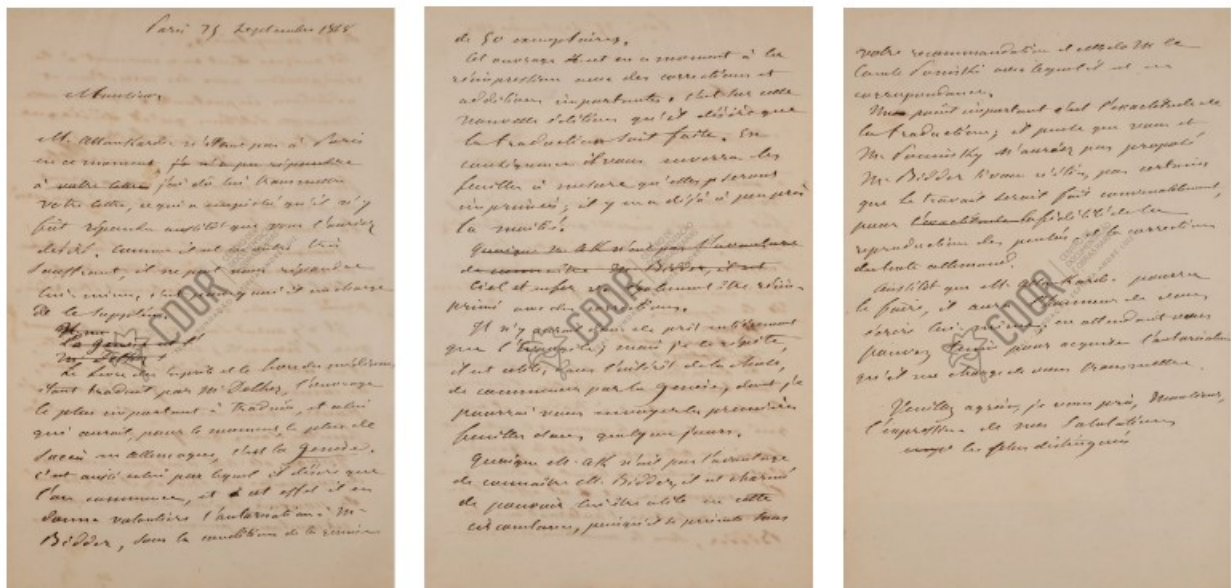 Paris 25 Septembre 1868
Monsieur,
M. Allan Kardec n'étant pas à Paris
en ce moment, je n'ai pu répondre
à votre lettre j'ai dû lui transmettre
votre lettre, ce qui a empêché qu'il n'y
fût répondu aussitôt que vous l'auriez
désiré. Comme il est en outre très
souffrant, il ne peut vous répondre
lui-même, c'est pourquoi il me charge
de le suppléer.
La Genèse est
Le livre des esprits et le livre des médiums
étant traduit par Mr Delhez, l'ouvrage
le plus important à traduire, et celui
qui aurait, pour le moment, le plus de
succès en Allemagne, c'est la Genèse.
C'est aussi celui par lequel il désire que
l'on commence, et à cet effet il en
donne volontiers l'autorisation à Mr
Bidder, sous la condition de la remise
de 50 exemplaires.
Cet ouvrage est en ce moment à la
réimpression avec des corrections et
additions importantes. C'est sur cette
nouvelle édition qu'il désire que
la traduction soit faite. En
conséquence il vous enverra les
feuilles à mesure qu'elles seront
imprimées; il y en a déjà à peu près
la moitié.
Quoique M. AK n'ait pas l'avantage
de connaître M. Bidder, il est
Ciel et enfer va également être réim-
primé avec des corrections.
Il n'y aurait donc de prêt entièrement
que l'Evangile; mais je le répète
il est utile, dans l'intérêt de la chose,
de commencer par la Genèse, dont je
pourrai vous envoyer les premières
feuilles dans quelques jours.
Quoique M. AK n'ait pas l'avantage
de connaître M. Bidder, il est charmé
de pouvoir lui être utile en cette
circonstance, puisqu'il se présente sous
votre recommandation et celle de M. le
Comte avec lequel il est en
correspondance.
Un point important c'est l'exactitude de
la traduction; il pense que vous et
Mr n'auriez pas proposé
Mr Bidder si vous n'étiez pas certains
que le travail serait fait convenablement,
pour l'exactitude la fidélité de la
reproduction des pensées et la correction
du texte allemand.
Aussitôt que M. Allan Kardec pourra
le faire, il aura l'honneur de vous
écrire lui-même; en attendant vous
pouvez tenir pour acquise l'autorisation
qu'il me charge de vous transmettre.
Veuillez agréer, je vous prie, Monsieur,
l'expression de mes salutations
les plus distinguées
CDOR
CDOR
CDOR